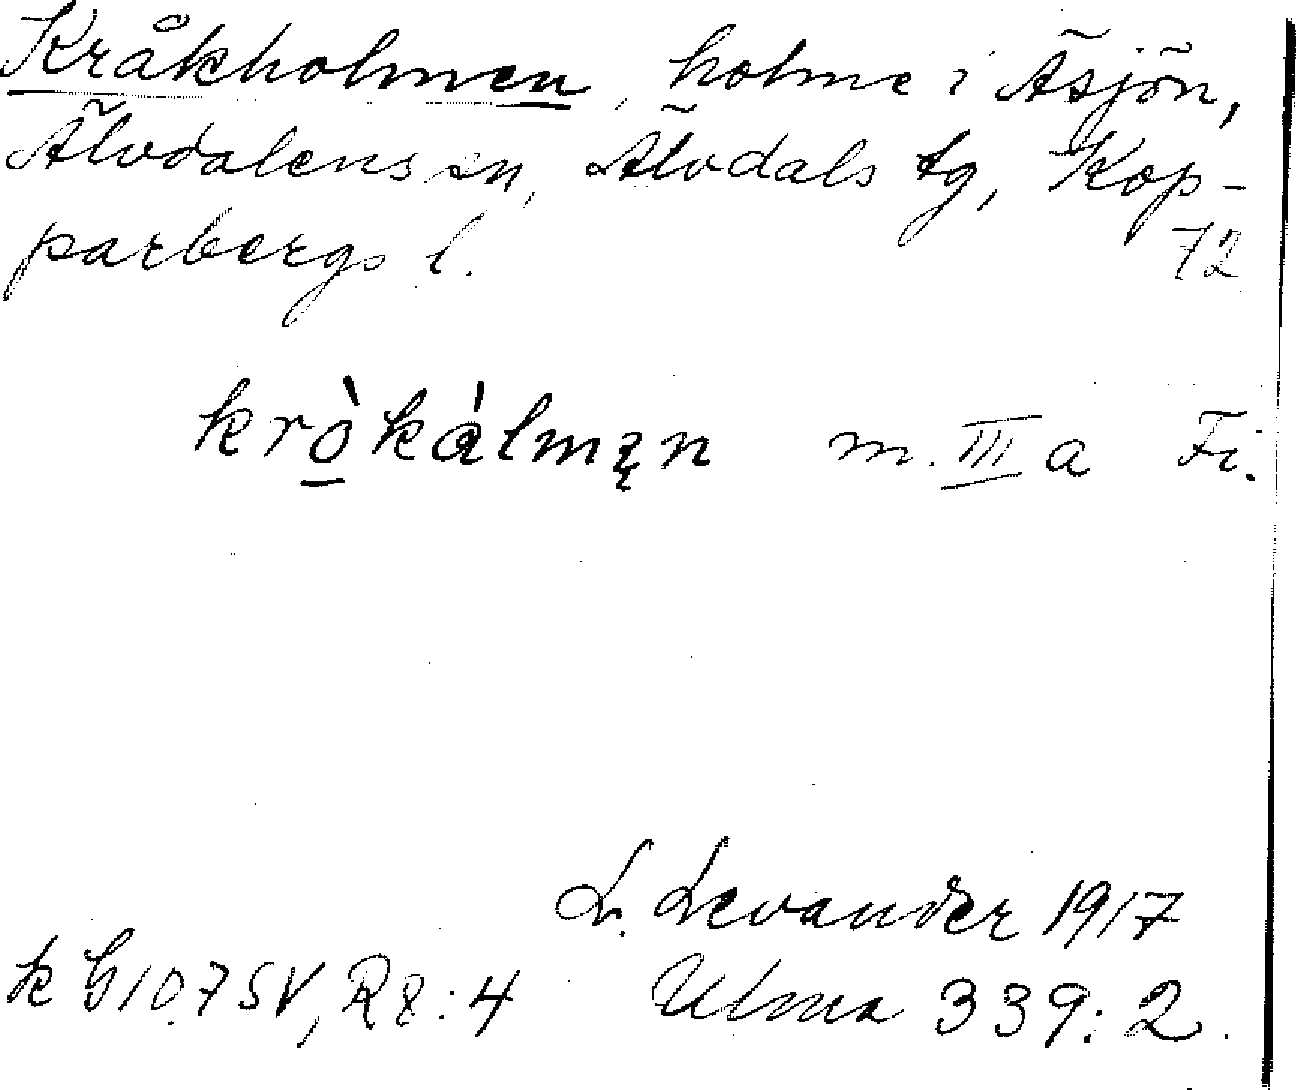 Kråkholmen, holme i Äsjön,
Älvdalens sn, Älvdals tg, Kop-
parbergs l. 72
krò̠kàlmęn m. III a Fi.
L. Levander 1917
k G10.7SV, R8:4 Ulma 339:2.